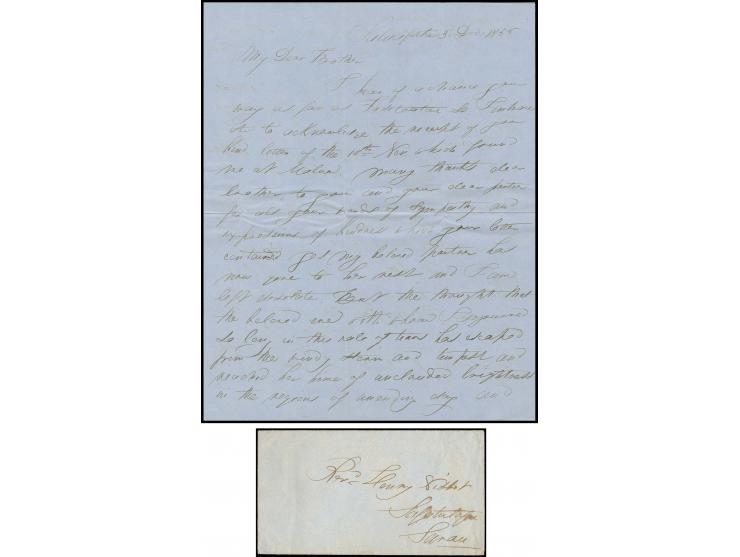 5 Dec. 1855
My Dear Brother
I hear of a chance your
way as far as so I embrace
it to acknowledge the receipt of your
kind letter of the 10th Nov which found
me at Many thanks dear
brother to you and your dear partner
for all your words of sympathy and
expressions of kindness which your letter
contained yes my beloved partner has
now gone to her rest and I am
left desolate But the thought that
the beloved one with whom I
so long in this vale of tears has escaped
from the windy storm and tempest and
reached her home of unclouded brightness
in the regions of unending day and
Revd. Henry